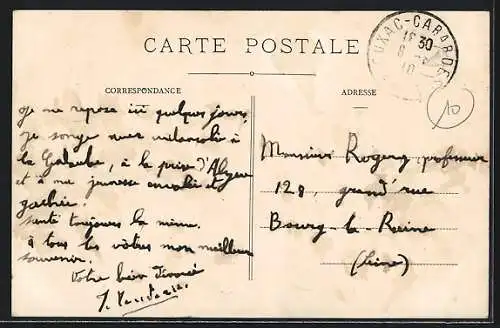 CARTE POSTALE
CUXAC-CABARDÈS
16 30
10
CORRESPONDANCE
Je me repose ici quelques jours
je songe avec mélancolie à
la Galaube, à la prise d'Alzeau
et à ma jeunesse envolée et
gachée.
Santé toujours la même.
à tous les vôtres mon meilleur
souvenir.
Votre bien dévoué
ADRESSE
Monsieur Rogery professeur
128, grand'rue
Bourg-la-Reine
(Seine)
10